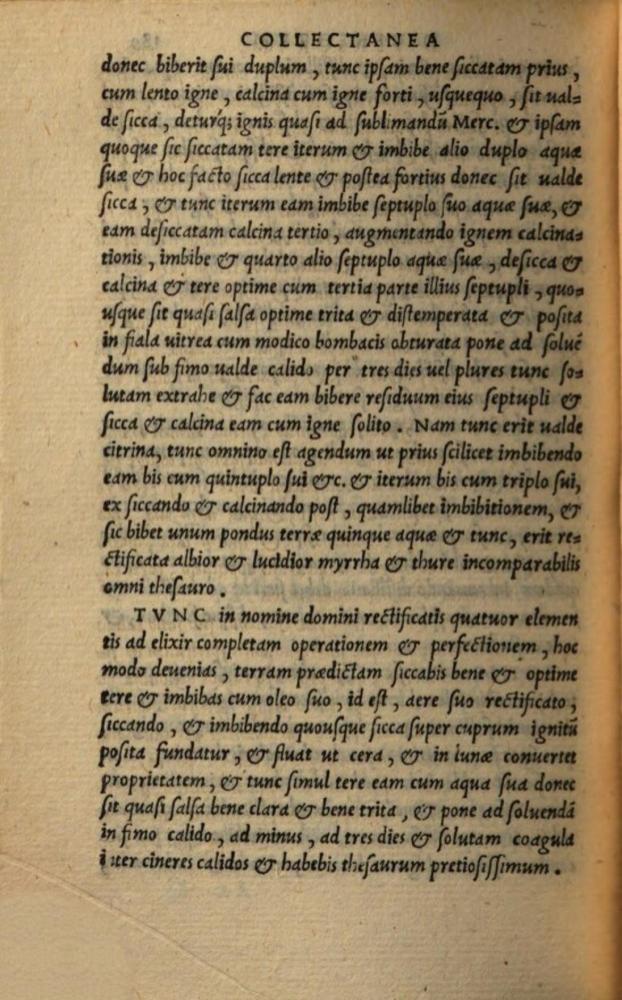 COLLECTANEA
donec biberit ſui duplum, tunc ipſam bene ſiccatam prius,
cum lento igne, calcina cum igne forti, uſquequo, ſit ual=
de ſicca, deturq́; ignis quaſi ad ſublimandũ Merc. & ipſam
quoque ſic ſiccatam tere iterum & imbibe alio duplo aquæ
ſuæ & hoc facto ſicca lente & poſtea fortius donec ſit ualde
ſicca, & tunc iterum eam imbibe ſeptuplo ſuo aquæ ſuæ, &
eam deſiccatam calcina tertio, augmentando ignem calcina=
tionis, imbibe & quarto alio ſeptuplo aquæ ſuæ, deſicca &
calcina & tere optime cum tertia parte illius ſeptupli, quo=
uſque ſit quaſi ſalſa optime trita & diſtemperata & poſita
in fiala uitrea cum modico bombacis obturata pone ad ſoluē
dum ſub fimo ualde calido per tres dies uel plures tunc ſo=
lutam extrahe & fac eam bibere reſiduum eius ſeptupli &
ſicca & calcina eam cum igne ſolito. Nam tunc erit ualde
citrina, tunc omnino eſt agendum ut prius ſcilicet imbibendo
eam bis cum quintuplo ſui &c. & iterum bis cum triplo ſui,
ex ſiccando & calcinando poſt, quamlibet imbibitionem, &
ſic bibet unum pondus terræ quinque aquæ & tunc, erit re=
ctificata albior & lucidior myrrha & thure incomparabilis
omni theſauro.
TVNC in nomine domini rectificatis quatuor elemen
tis ad elixir completam operationem & perfectionem, hoc
modo deuenias, terram prædictam ſiccabis bene & optime
tere & imbibas cum oleo ſuo, id eſt, aere ſuo rectificato,
ſiccando, & imbibendo quouſque ſicca ſuper cuprum ignitũ
poſita fundatur, & fluat ut cera, & in lunæ conuertet
proprietatem, & tunc ſimul tere eam cum aqua ſua donec
ſit quaſi ſalſa bene clara & bene trita, & pone ad ſoluendã
in fimo calido, ad minus, ad tres dies & ſolutam coagula
inter cineres calidos & habebis theſaurum pretioſiſſimum.